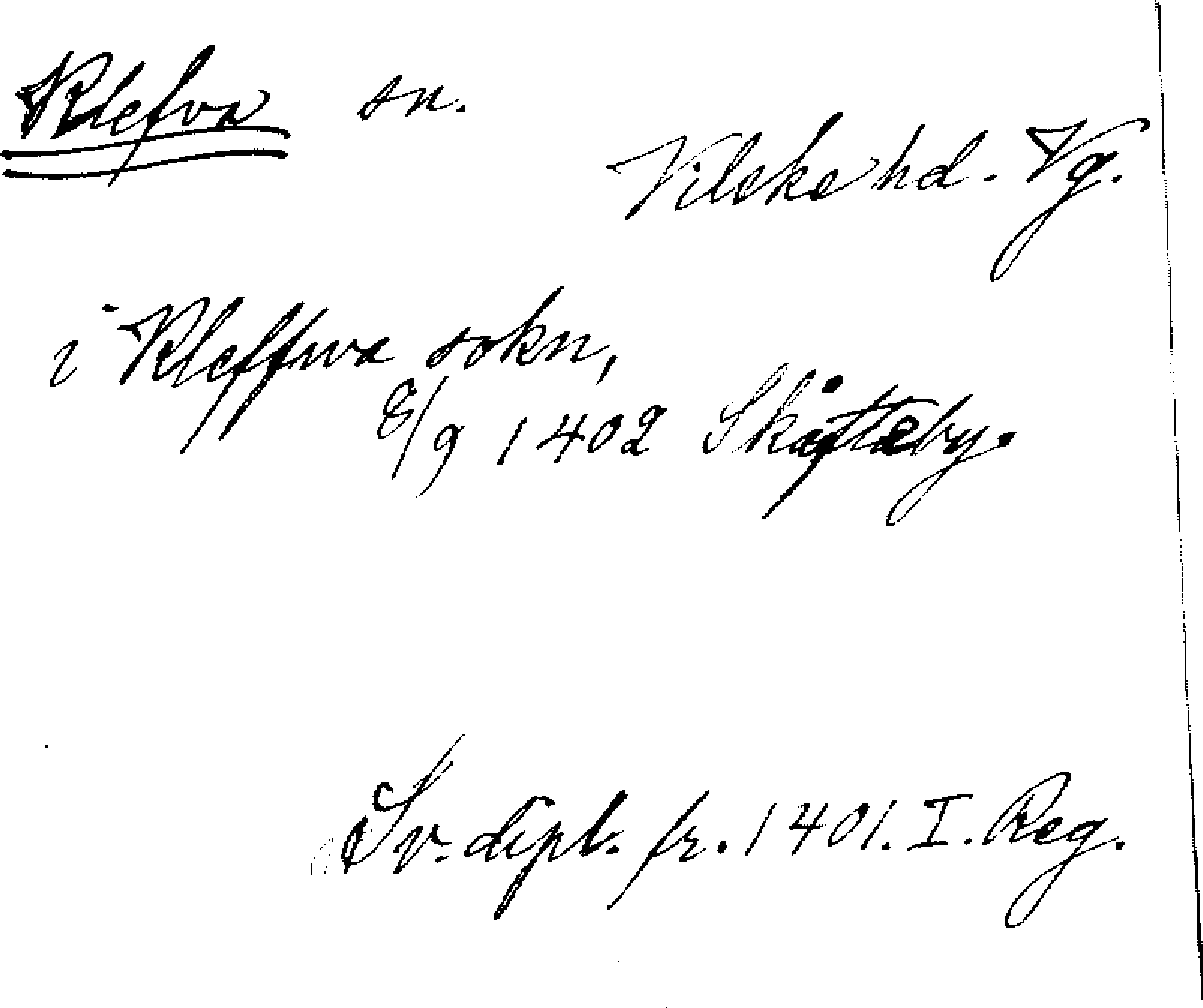 Klefva sn.
Vilske hd. Vg.
i Kleffwa sokn,
8/9 1402 Skåfteby.
Sv. dipl. fr. 1401. I. Reg.